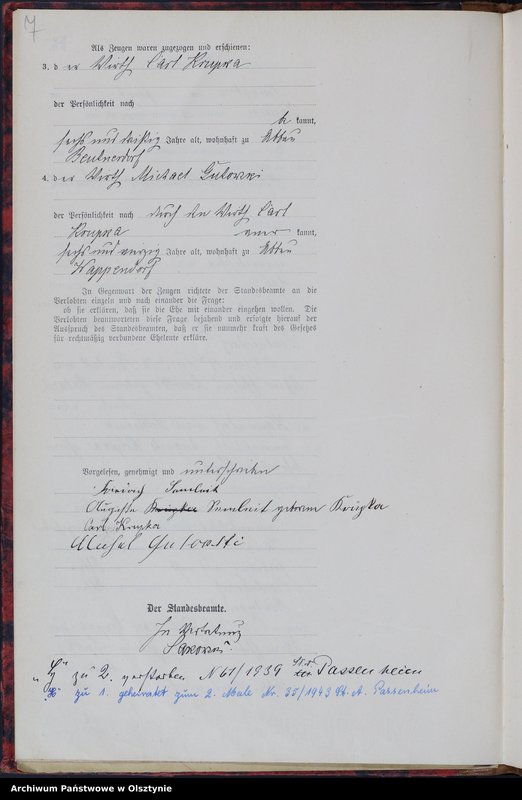 7
Als Zeugen waren zugezogen und erschienen:
3. der Wirth Carl Krupka
der Persönlichkeit nach
be kannt,
sechs und dreißig Jahre alt, wohnhaft zu Abbau
Beutnerdorf
4. der Wirth Michael Gutowski
der Persönlichkeit nach durch den Wirth Carl
Krupka aner kannt,
sechs und vierzig Jahre alt, wohnhaft zu Abbau
Wappendorf
In Gegenwart der Zeugen richtete der Standesbeamte an die
Verlobten einzeln und nach einander die Frage:
ob sie erklären, daß sie die Ehe mit einander eingehen wollen. Die
Verlobten beantworteten diese Frage bejahend und erfolgte hierauf der
Ausspruch des Standesbeamten, daß er sie nunmehr kraft des Gesetzes
für rechtmäßig verbundene Eheleute erkläre.
Vorgelesen, genehmigt und unterschrieben
Auguste Krupka geboren Krupka
Carl Krupka
Michael Gutowski
Der Standesbeamte.
In Vertretung
"H" zu 2. verstorben N 61/1939 Passenheim
"H" zu 1. geheiratet zum 2. Male Nr. 35/1943 St. A. Passenheim
Archiwum Państwowe w Olsztynie